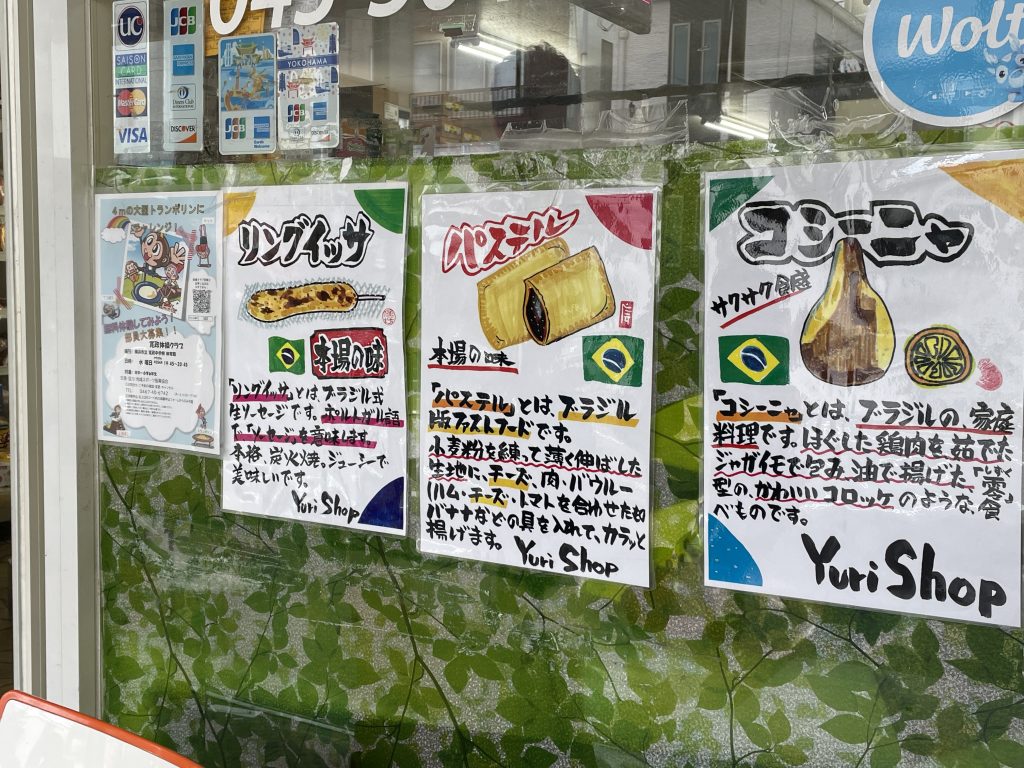 UC
SAISON
CARD
INTERNATIONAL
MasterCard
VISA
JCB
Diners Club
INTERNATIONAL
DISCOVER
JCB
YOKOHAMA
JCB
DISCOVER
Wolt
4mの大型トランポリンに
リングイッサ
本場の味
「リングイッサ」とは、ブラジル式
生ソーセージです。ポルトガル語
で「ソーセージ」を意味します。
本格、炭火焼、ジューシーで、
美味しいです。
Yuri Shop
パステル
本場の味
「パステル」とは、ブラジル
版ファストフードです。
小麦粉を練って薄く伸ばした
生地に、チーズ、肉・バウルー
(ハム・チーズ・トマトを合わせたもの)
バナナなどの具を入れて、カラッと
揚げます。
Yuri Shop
コシーニャ
サクサク食感
「コシーニャ」とは、ブラジルの、家庭
料理です。ほぐした鶏肉を茹でた
ジャガイモで包み、油で揚げた、「雫」
型の、かわいいコロッケのような、食
べものです。
Yuri Shop